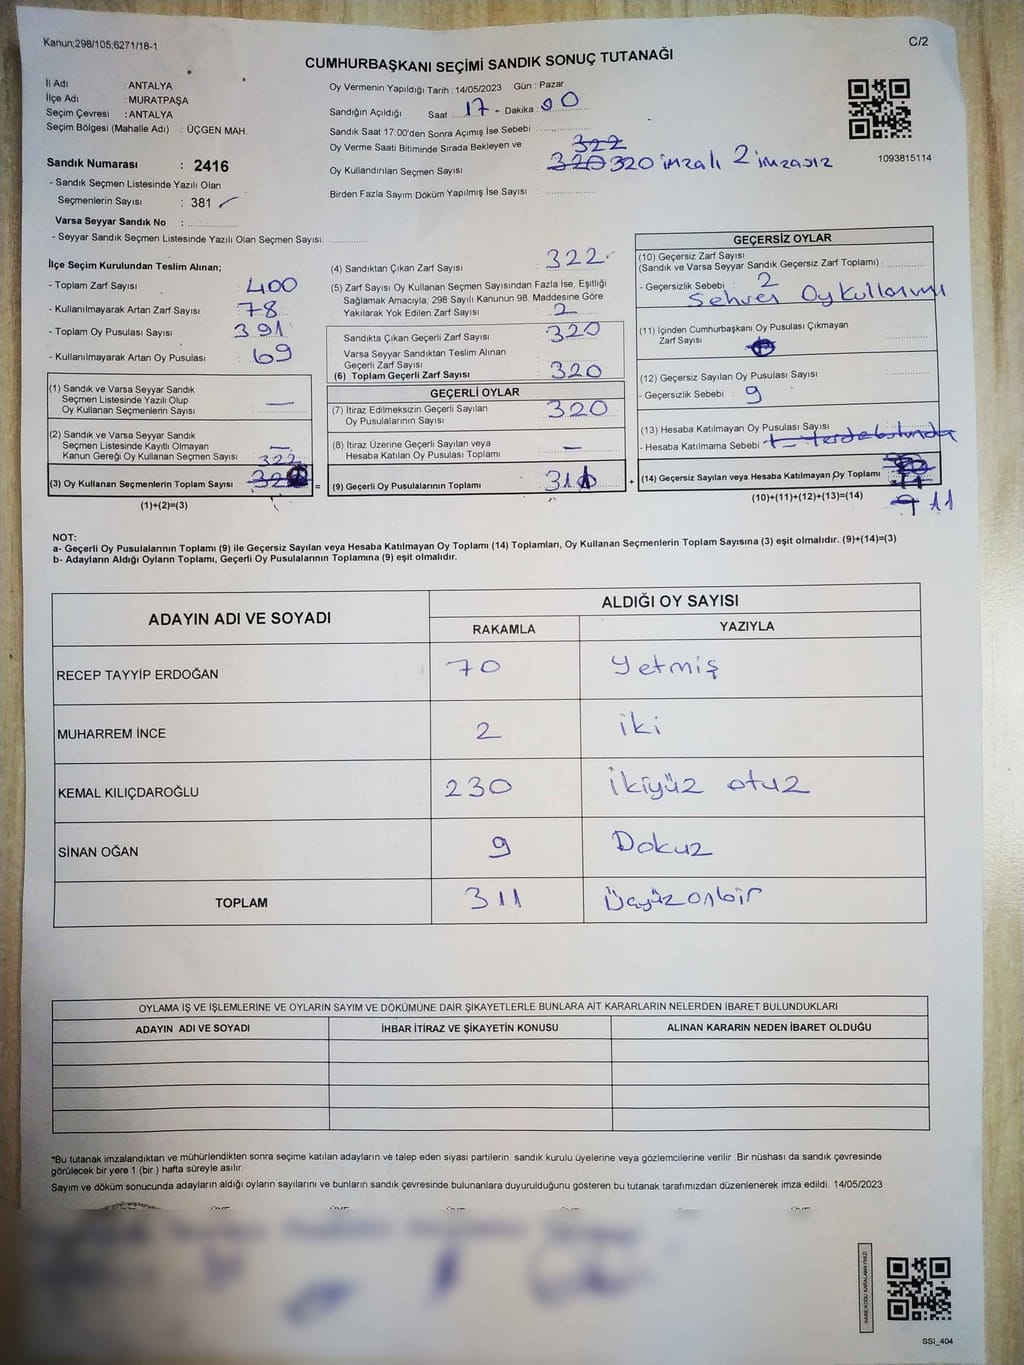 Kanun;298/105;6271/18-1
C/2
CUMHURBAŞKANI SEÇİMİ SANDIK SONUÇ TUTANAĞI
İl Adı : ANTALYA
İlçe Adı : MURATPAŞA
Seçim Çevresi : ANTALYA
Seçim Bölgesi (Mahalle Adı) : ÜÇGEN MAH.
Sandık Numarası : 2416
- Sandık Seçmen Listesinde Yazılı Olan
Seçmenlerin Sayısı : 381
Varsa Seyyar Sandık No :
- Seyyar Sandık Seçmen Listesinde Yazılı Olan Seçmen Sayısı:
Oy Vermenin Yapıldığı Tarih : 14/05/2023 Gün : Pazar
Sandığın Açıldığı Saat 17 - Dakika : 00
Sandık Saat 17:00'den Sonra Açımış İse Sebebi :
Oy Verme Saati Bitiminde Sırada Bekleyen ve 322
Oy Kullandırılan Seçmen Sayısı 320 320 imzalı 2 imzasız
Birden Fazla Sayım Döküm Yapılmış İse Sayısı :
1093815114
İlçe Seçim Kurulundan Teslim Alınan;
- Toplam Zarf Sayısı : 400
- Kullanılmayarak Artan Zarf Sayısı : 78
- Toplam Oy Pusulası Sayısı : 391
- Kullanılmayarak Artan Oy Pusulası : 69
(1) Sandık ve Varsa Seyyar Sandık
Seçmen Listesinde Yazılı Olup
Oy Kullanan Seçmenlerin Sayısı : —
(2) Sandık ve Varsa Seyyar Sandık
Seçmen Listesinde Kayıtlı Olmayan
Kanun Gereği Oy Kullanan Seçmen Sayısı : —
322
(3) Oy Kullanan Seçmenlerin Toplam Sayısı
(1)+(2)=(3)
(4) Sandıktan Çıkan Zarf Sayısı 322
(5) Zarf Sayısı Oy Kullanan Seçmen Sayısından Fazla İse, Eşitliği
Sağlamak Amacıyla; 298 Sayılı Kanunun 98. Maddesine Göre
Yakılarak Yok Edilen Zarf Sayısı : 2
Sandıkta Çıkan Geçerli Zarf Sayısı : 320
Varsa Seyyar Sandıktan Teslim Alınan
Geçerli Zarf Sayısı
(6) Toplam Geçerli Zarf Sayısı : 320
GEÇERLİ OYLAR
(7) İtiraz Edilmeksizin Geçerli Sayılan
Oy Pusulasının Sayısı : 320
(8) İtiraz Üzerine Geçerli Sayılan veya
Hesaba Katılan Oy Pusulası Toplamı : —
= (9) Geçerli Oy Pusulalarının Toplamı 311
GEÇERSİZ OYLAR
(10) Geçersiz Zarf Sayısı
(Sandık ve Varsa Seyyar Sandık Geçersiz Zarf Toplamı) :
- Geçersizlik Sebebi : 2
Oy Kullanımı
(11) İçinden Cumhurbaşkanı Oy Pusulası Çıkmayan
Zarf Sayısı
(12) Geçersiz Sayılan Oy Pusulası Sayısı :
- Geçersizlik Sebebi : 9
(13) Hesaba Katılmayan Oy Pusulası Sayısı :
- Hesaba Katılmama Sebebi :
+ (14) Geçersiz Sayılan veya Hesaba Katılmayan Oy Toplamı
(10)+(11)+(12)+(13)=(14) 9 11
NOT:
a- Geçerli Oy Pusulalarının Toplamı (9) ile Geçersiz Sayılan veya Hesaba Katılmayan Oy Toplamı (14) Toplamları, Oy Kullanan Seçmenlerin Toplam Sayısına (3) eşit olmalıdır. (9)+(14)=(3)
b- Adayların Aldığı Oyların Toplamı, Geçerli Oy Pusulalarının Toplamına (9) eşit olmalıdır.
ADAYIN ADI VE SOYADI
ALDIĞI OY SAYISI
RAKAMLA YAZIYLA
RECEP TAYYİP ERDOĞAN 70 Yetmiş
MUHARREM İNCE 2 iki
KEMAL KILIÇDAROĞLU 230 ikiyüz otuz
SİNAN OĞAN 9 Dokuz
TOPLAM 311 Üçyüzonbir
OYLAMA İŞ VE İŞLEMLERİNE VE OYLARIN SAYIM VE DÖKÜMÜNE DAİR ŞİKAYETLERLE BUNLARA AİT KARARLARIN NELERDEN İBARET BULUNDUKLARI
ADAYIN ADI VE SOYADI İHBAR İTİRAZ VE ŞİKAYETİN KONUSU ALINAN KARARIN NEDEN İBARET OLDUĞU
*Bu tutanak imzalandıktan ve mühürlendikten sonra seçime katılan adayların ve talep eden siyasi partilerin sandık kurulu üyelerine veya gözlemcilerine verilir .Bir nüshası da sandık çevresinde
görülecek bir yere 1 (bir ) hafta süreyle asılır.
Sayım ve döküm sonucunda adayların aldığı oyların sayılarını ve bunların sandık çevresinde bulunanlara duyurulduğunu gösteren bu tutanak tarafımızdan düzenlenerek imza edildi. 14/05/2023
SSI_404